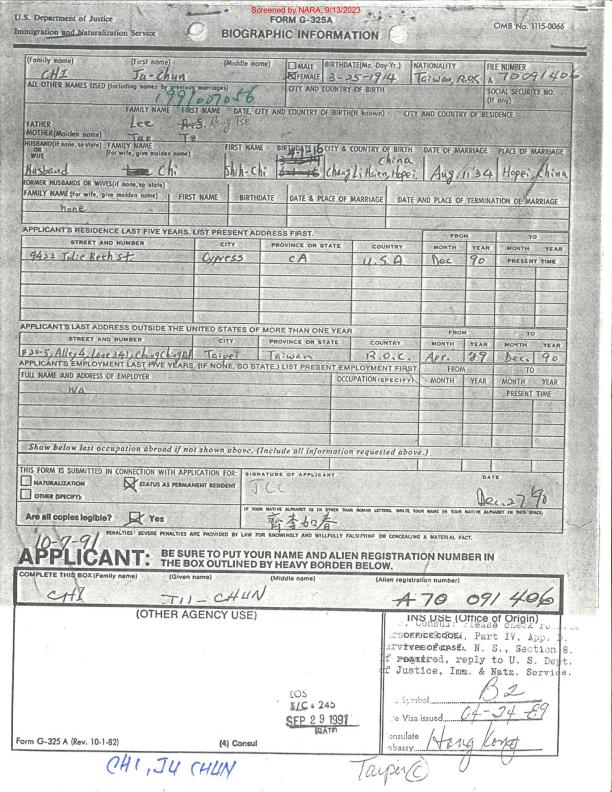 Screened by NARA, 9/13/2023
U.S. Department of Justice
Immigration and Naturalization Service
FORM G-325A
BIOGRAPHIC INFORMATION
OMB No. 1115-0066
(Family name) (First name) (Middle name) MALE BIRTHDATE(Mo.-Day-Yr.) NATIONALITY FILE NUMBER
CHI Ju-Chun FEMALE 3-25-1914 Taiwan, ROC A 70091406
ALL OTHER NAMES USED (Including names by previous marriages) CITY AND COUNTRY OF BIRTH SOCIAL SECURITY NO. (If any)
FAMILY NAME FIRST NAME DATE, CITY AND COUNTRY OF BIRTH(If known) CITY AND COUNTRY OF RESIDENCE
FATHER Lee
MOTHER(Maiden name)
HUSBAND(If none, so state) OR WIFE FAMILY NAME (For wife, give maiden name) FIRST NAME BIRTHDATE CITY & COUNTRY OF BIRTH DATE OF MARRIAGE PLACE OF MARRIAGE
Husband Chi Shih-Chi Chang Li Hsien, Hopei, China Aug. 11 '34 Hopei, China
FORMER HUSBANDS OR WIVES(if none, so state)
FAMILY NAME (For wife, give maiden name) FIRST NAME BIRTHDATE DATE & PLACE OF MARRIAGE DATE AND PLACE OF TERMINATION OF MARRIAGE
none
APPLICANT'S RESIDENCE LAST FIVE YEARS. LIST PRESENT ADDRESS FIRST.
FROM TO
STREET AND NUMBER CITY PROVINCE OR STATE COUNTRY MONTH YEAR MONTH YEAR
9422 Julie Beth St. Cypress CA U.S.A Dec 90 PRESENT TIME
APPLICANT'S LAST ADDRESS OUTSIDE THE UNITED STATES OF MORE THAN ONE YEAR
FROM TO
STREET AND NUMBER CITY PROVINCE OR STATE COUNTRY MONTH YEAR MONTH YEAR
#20-5, Alley 4, Lane 341, Taipei Taiwan R.O.C. Apr. 89 Dec. 90
APPLICANT'S EMPLOYMENT LAST FIVE YEARS. (IF NONE, SO STATE.) LIST PRESENT EMPLOYMENT FIRST. FROM TO
FULL NAME AND ADDRESS OF EMPLOYER OCCUPATION(SPECIFY) MONTH YEAR MONTH YEAR
N/a PRESENT TIME
Show below last occupation abroad if not shown above. (Include all information requested above.)
THIS FORM IS SUBMITTED IN CONNECTION WITH APPLICATION FOR: SIGNATURE OF APPLICANT DATE
NATURALIZATION STATUS AS PERMANENT RESIDENT
OTHER (SPECIFY): JCC Dec. 27 '90
IF YOUR NATIVE ALPHABET IS IN OTHER THAN ROMAN LETTERS, WRITE YOUR NAME IN YOUR NATIVE ALPHABET IN THIS SPACE:
Are all copies legible? Yes 齊李如春
PENALTIES: SEVERE PENALTIES ARE PROVIDED BY LAW FOR KNOWINGLY AND WILLFULLY FALSIFYING OR CONCEALING A MATERIAL FACT.
10-7-91
APPLICANT: BE SURE TO PUT YOUR NAME AND ALIEN REGISTRATION NUMBER IN
THE BOX OUTLINED BY HEAVY BORDER BELOW.
COMPLETE THIS BOX (Family name) (Given name) (Middle name) (Alien registration number)
CHI JU-CHUN A70 091 406
(OTHER AGENCY USE) INS USE (Office of Origin)
OFFICE CODE: Part IV, App.
TYPE OF CASE: N. S., Section 8.
reply to U. S. Dept.
of Justice, Imm. & Natz. Service.
Symbol B2
Visa issued 04-24-89
Hong Kong
EOS
I/C # 245
SEP 29 1991
(DATE)
Form G-325 A (Rev. 10-1-82) (4) Consul
CHI, JU CHUN Taipei (C)